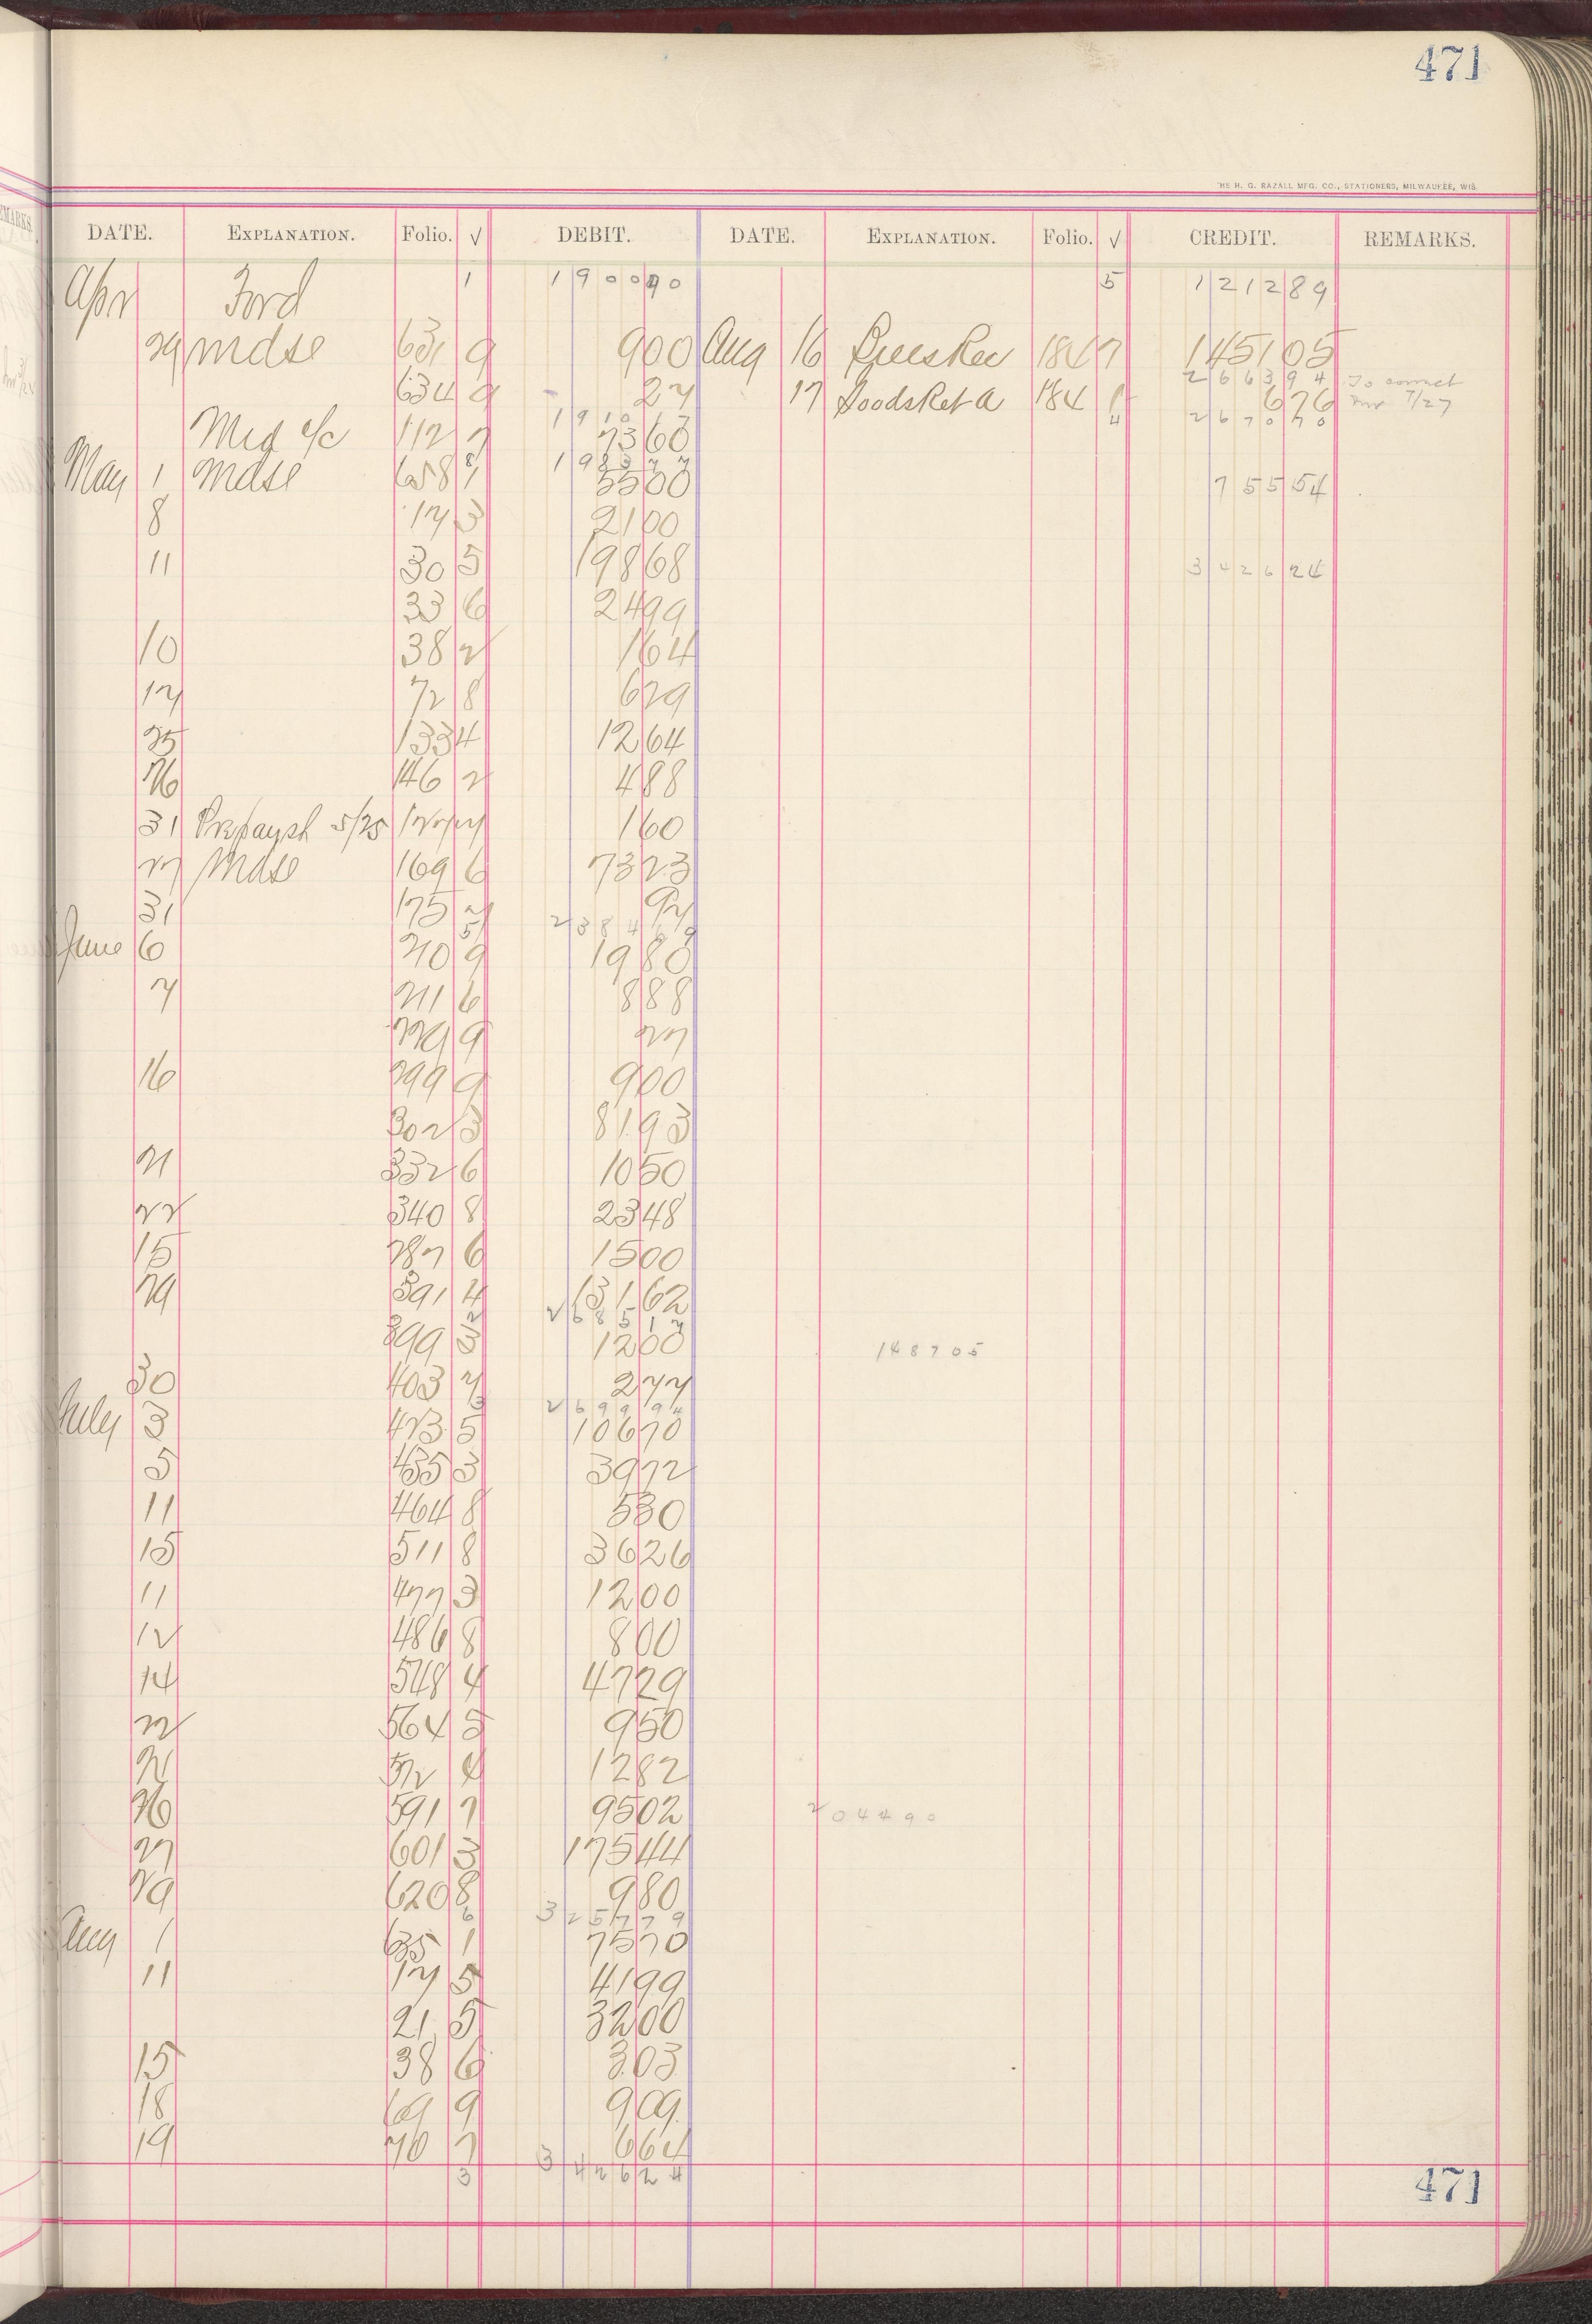 471
THE H. G. RAZALL MFG. CO., STATIONERS, MILWAUKEE, WIS.
DATE. EXPLANATION. Folio. √ DEBIT. DATE. EXPLANATION. Folio. √ CREDIT. REMARKS.
Apr Ford 1 5 121289
29 mdse 631 9 900 Aug 16 184 7 145105
266394 To correct
634 9 27 17 Goods Ret a 184 1 676 7/27
1910 17 4 267070
Mfg a/c 112 7 7360
8 198377
May 1 Mdse 658 1 5500 75554
8 17 3 2100
11 30 5 19868 342624
33 6 2499
10 38 2 164
17 72 8 629
25 133 4 1264
26 146 2 488
31 5/25 160
27 Mdse 169 6 7323
31 175 7 97
5 238469
June 6 210 9 1980
7 211 6 888
229 9 27
16 299 9 900
302 3 8193
21 332 6 1050
22 340 8 2348
15 287 6 1500
29 391 4 13162
2 268517
399 3 1200 148705
30 403 7 277
3 269994
July 3 423 5 10670
5 435 3 3972
11 464 8 530
15 511 8 3626
11 477 3 1200
12 486 8 800
14 548 4 4729
22 564 5 950
21 572 4 1282
26 591 7 9502 204490
27 601 3 17544
29 620 8 980
6 325779
Aug 1 635 1 7570
11 17 5 4199
21 5 3200
15 38 6 303
18 69 9 909
19 70 7 664
3 342624
471